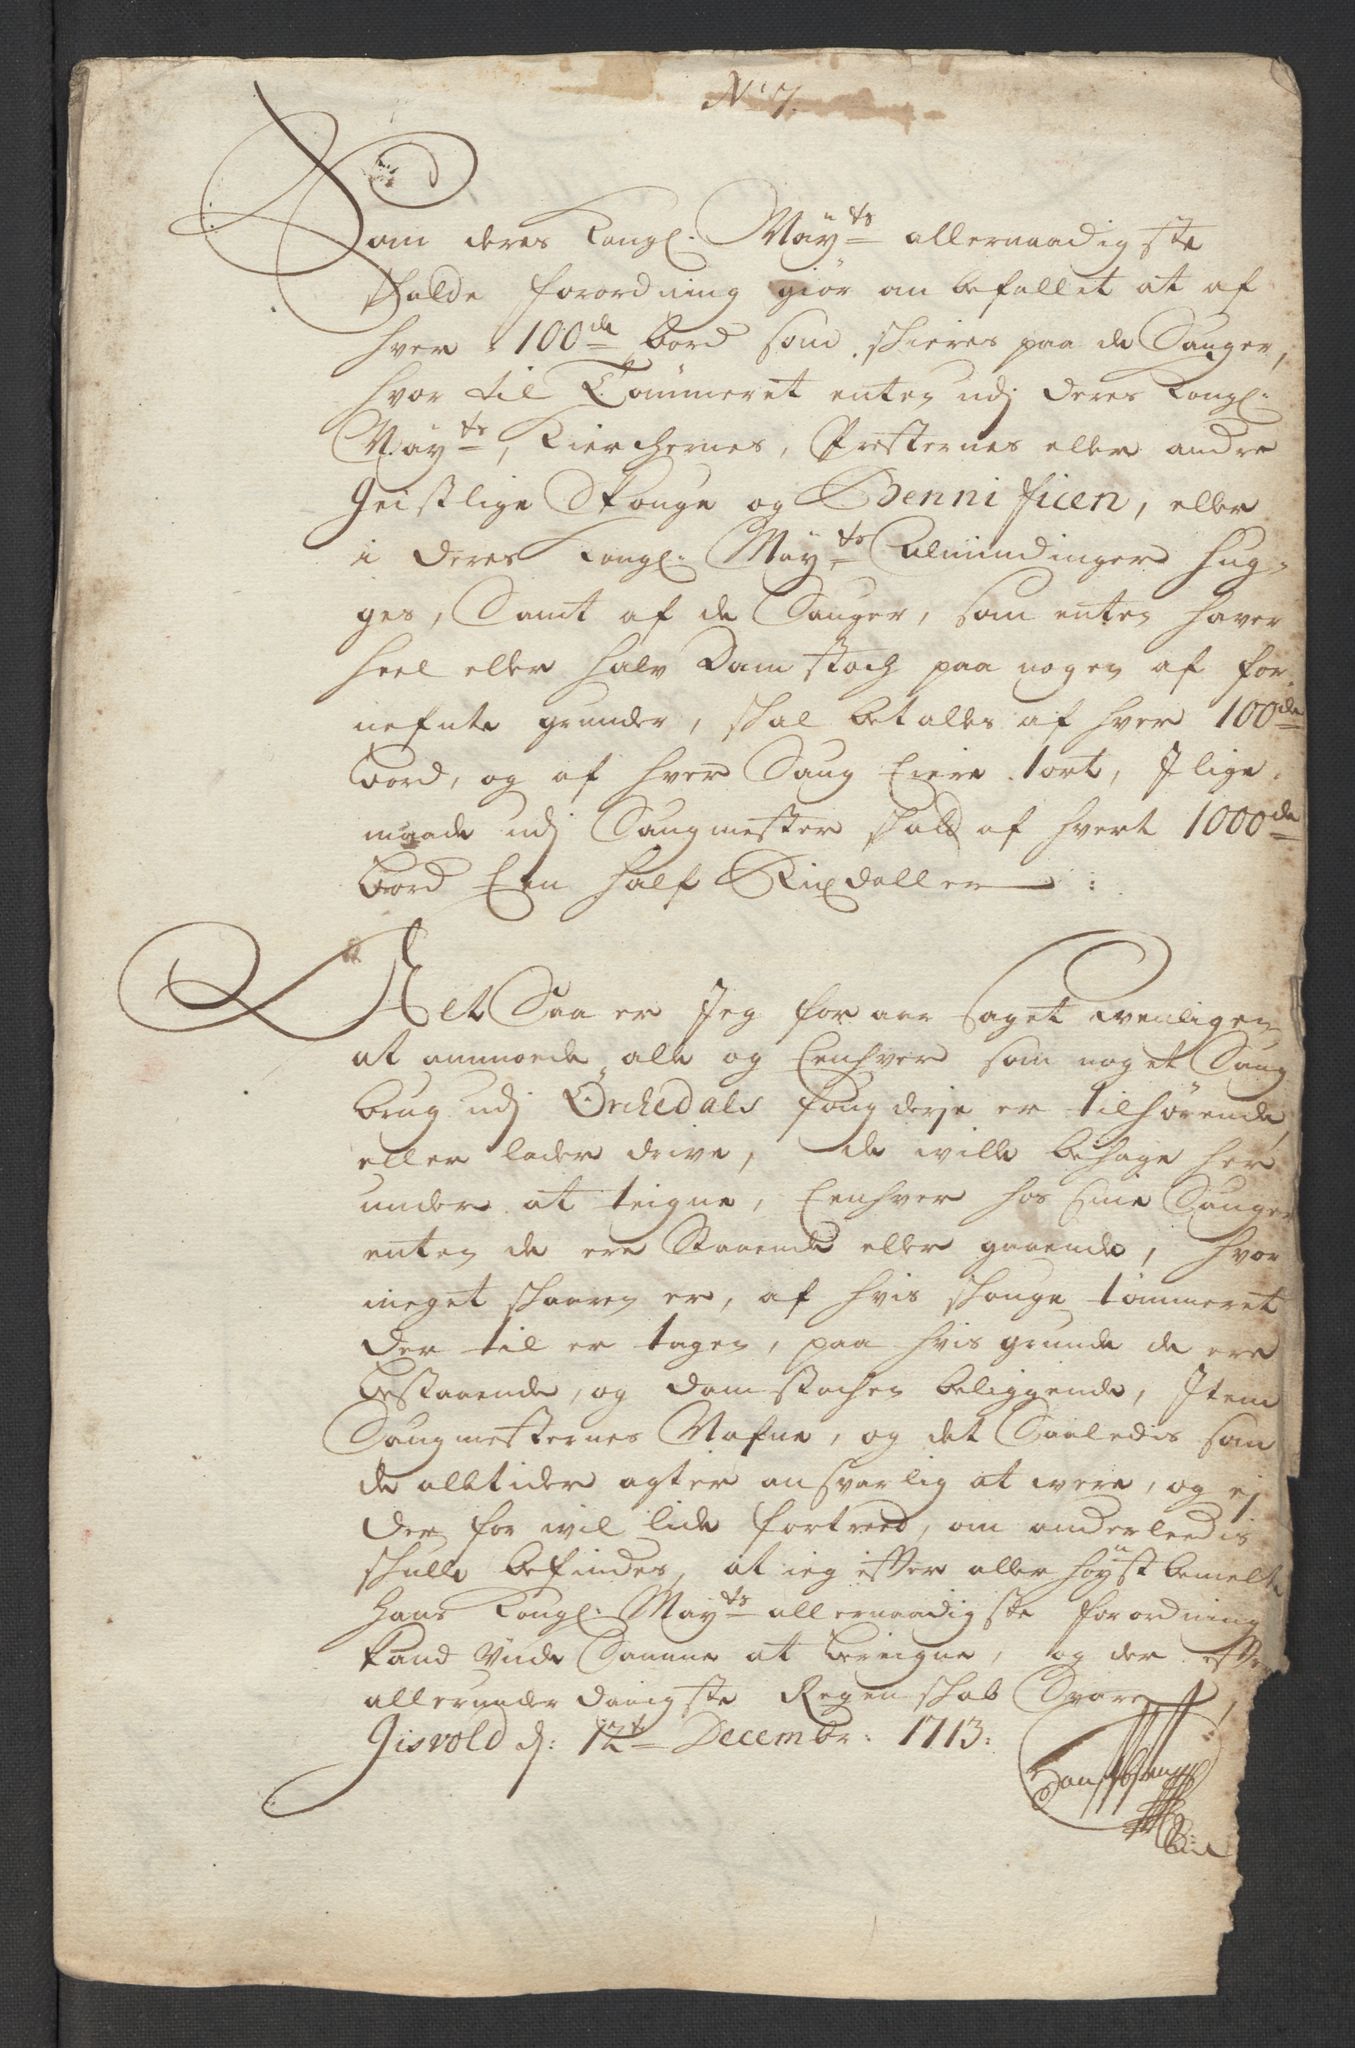 No 7.
Som deres Kongl: Mayts allernaadigste
skolde forordning giör anbefallet at af
hver 100de bord som skieres paa de Sauger,
hvor til Tömmeret enten udj deres Kongl:
Mayts, Kierchernes, Presternes eller andre
Geistlige Skouge og Bennificen, eller
i deres Kongl: Mayts Almindinger hug-
ges, Samt af de Sauger, som enten haver
heel eller halv Damstoch paa nogen af for-
nefnte grunde, skal betales af hver 100de
bord, og af hver Saug Eiere 1 ort, Jlige
maade udj Saugmester skatt af hvert 1000de
bord Een half Rixdaller :
Alt Saa er Jeg foraarsaget wenligen
at anmoede alle og Eenhver som noget Saug
brug udj Örchedals fougderje er tilhörende,
eller lader drive, de wille behage her
under at teigne, Eenhver hos Sine Sauger
enten de ere Staaende eller gaaende, hvor
meget skaaren er, af hvis skouge tömmeret
der til er tagen, paa hvis grunde de ere
bestaaende, og damstochen beliggende, Jtem
Saugmesternes Nafne, og det Saaledis som
de altider agter ansvarlig at were, og ej
der for wil lide fortred, om anderleedis
skulle befindes, at ieg effter aller höystbemelte
Hans Kongl: Mayts allernaadigste forordning
kand vide Samme at bereigne, og der effter
allerunderdanigste Regenskab Svare,
Gisvold d: 12te Decembr: 1713: